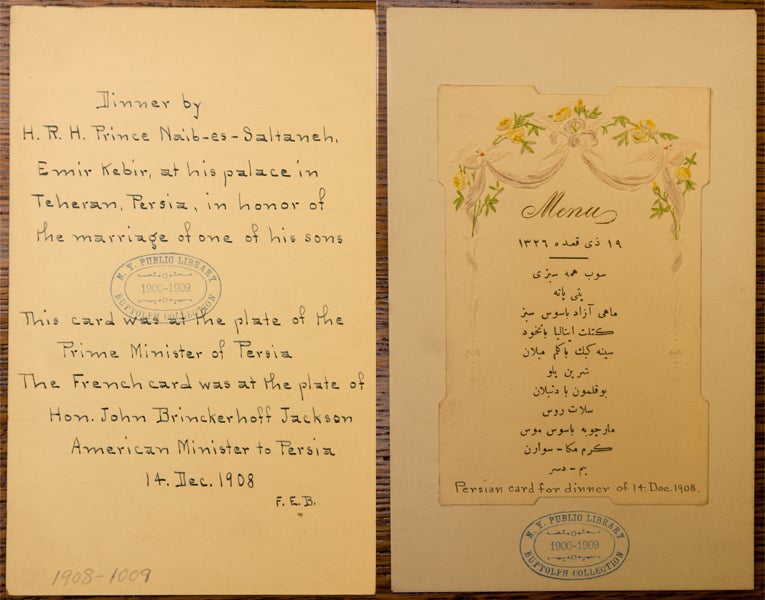 Dinner by
H. R. H. Prince Naib-es-Saltaneh,
Emir Kebir, at his palace in
Teheran, Persia, in honor of
the marriage of one of his sons
N. Y. PUBLIC LIBRARY
1900-1909
BUTTOLPH COLLECTION
This card was at the plate of the
Prime Minister of Persia
The French card was at the plate of
Hon. John Brinckerhoff Jackson
American Minister to Persia
14. Dec. 1908
F. E. B.
1908-1009
Menu
١٩ ذی قعده ١٣٢٦
سوپ همه سبزی
پتی پاته
ماهی آزاد باسوس سبز
کتلت ایتالیا بانخود
سینه کبك باکلم میلان
شرین پلو
بوقلمون با دنبلان
سلات روس
مارچوبه باسوس موس
کرم مکا - سوارن
بم - دسر
Persian card for dinner of 14. Dec. 1908.
N. Y. PUBLIC LIBRARY
1900-1909
BUTTOLPH COLLECTION